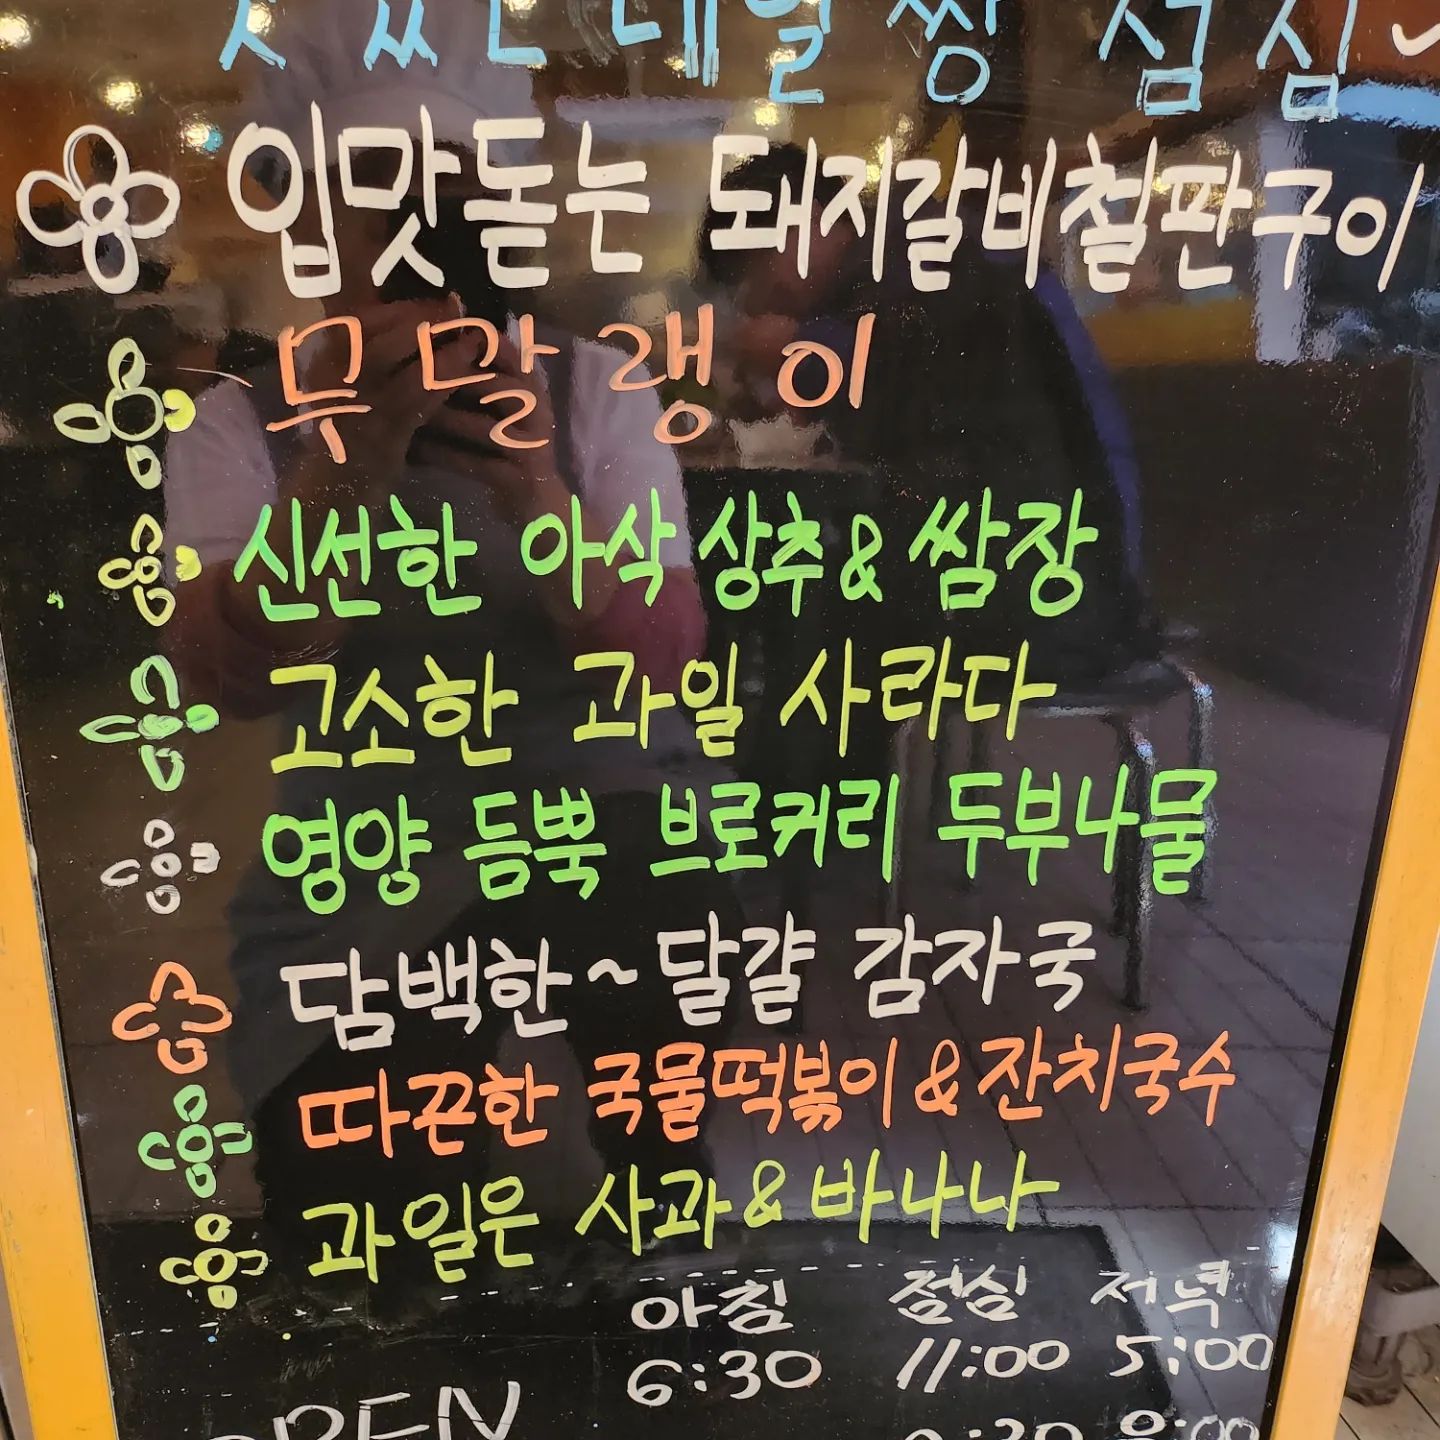 점심~
입맛돋는 돼지갈비철판구이
무말랭이
신선한 아삭 상추 & 쌈장
고소한 과일 사라다
영양 듬뿍 브로커리 두부나물
담백한~ 달걀 감자국
따끈한 국물떡볶이 & 잔치국수
과일은 사과 & 바나나
아침 점심 저녁
6:30 11:00 5:00
OPEN